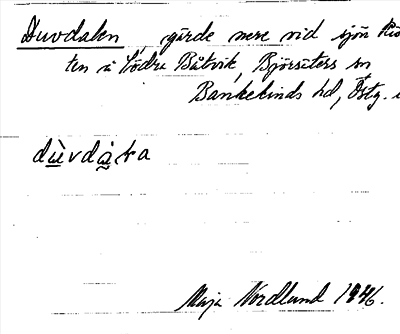 Duvdalen, gärde nere vid sjön
ten å Södra Båtvik, Björsäters sn
Bankekinds hd, Östg.
dùvdàɽa
Maja Nordlund 1946.